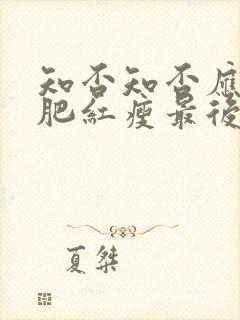 知否知否应
肥红瘦最後
夏桀